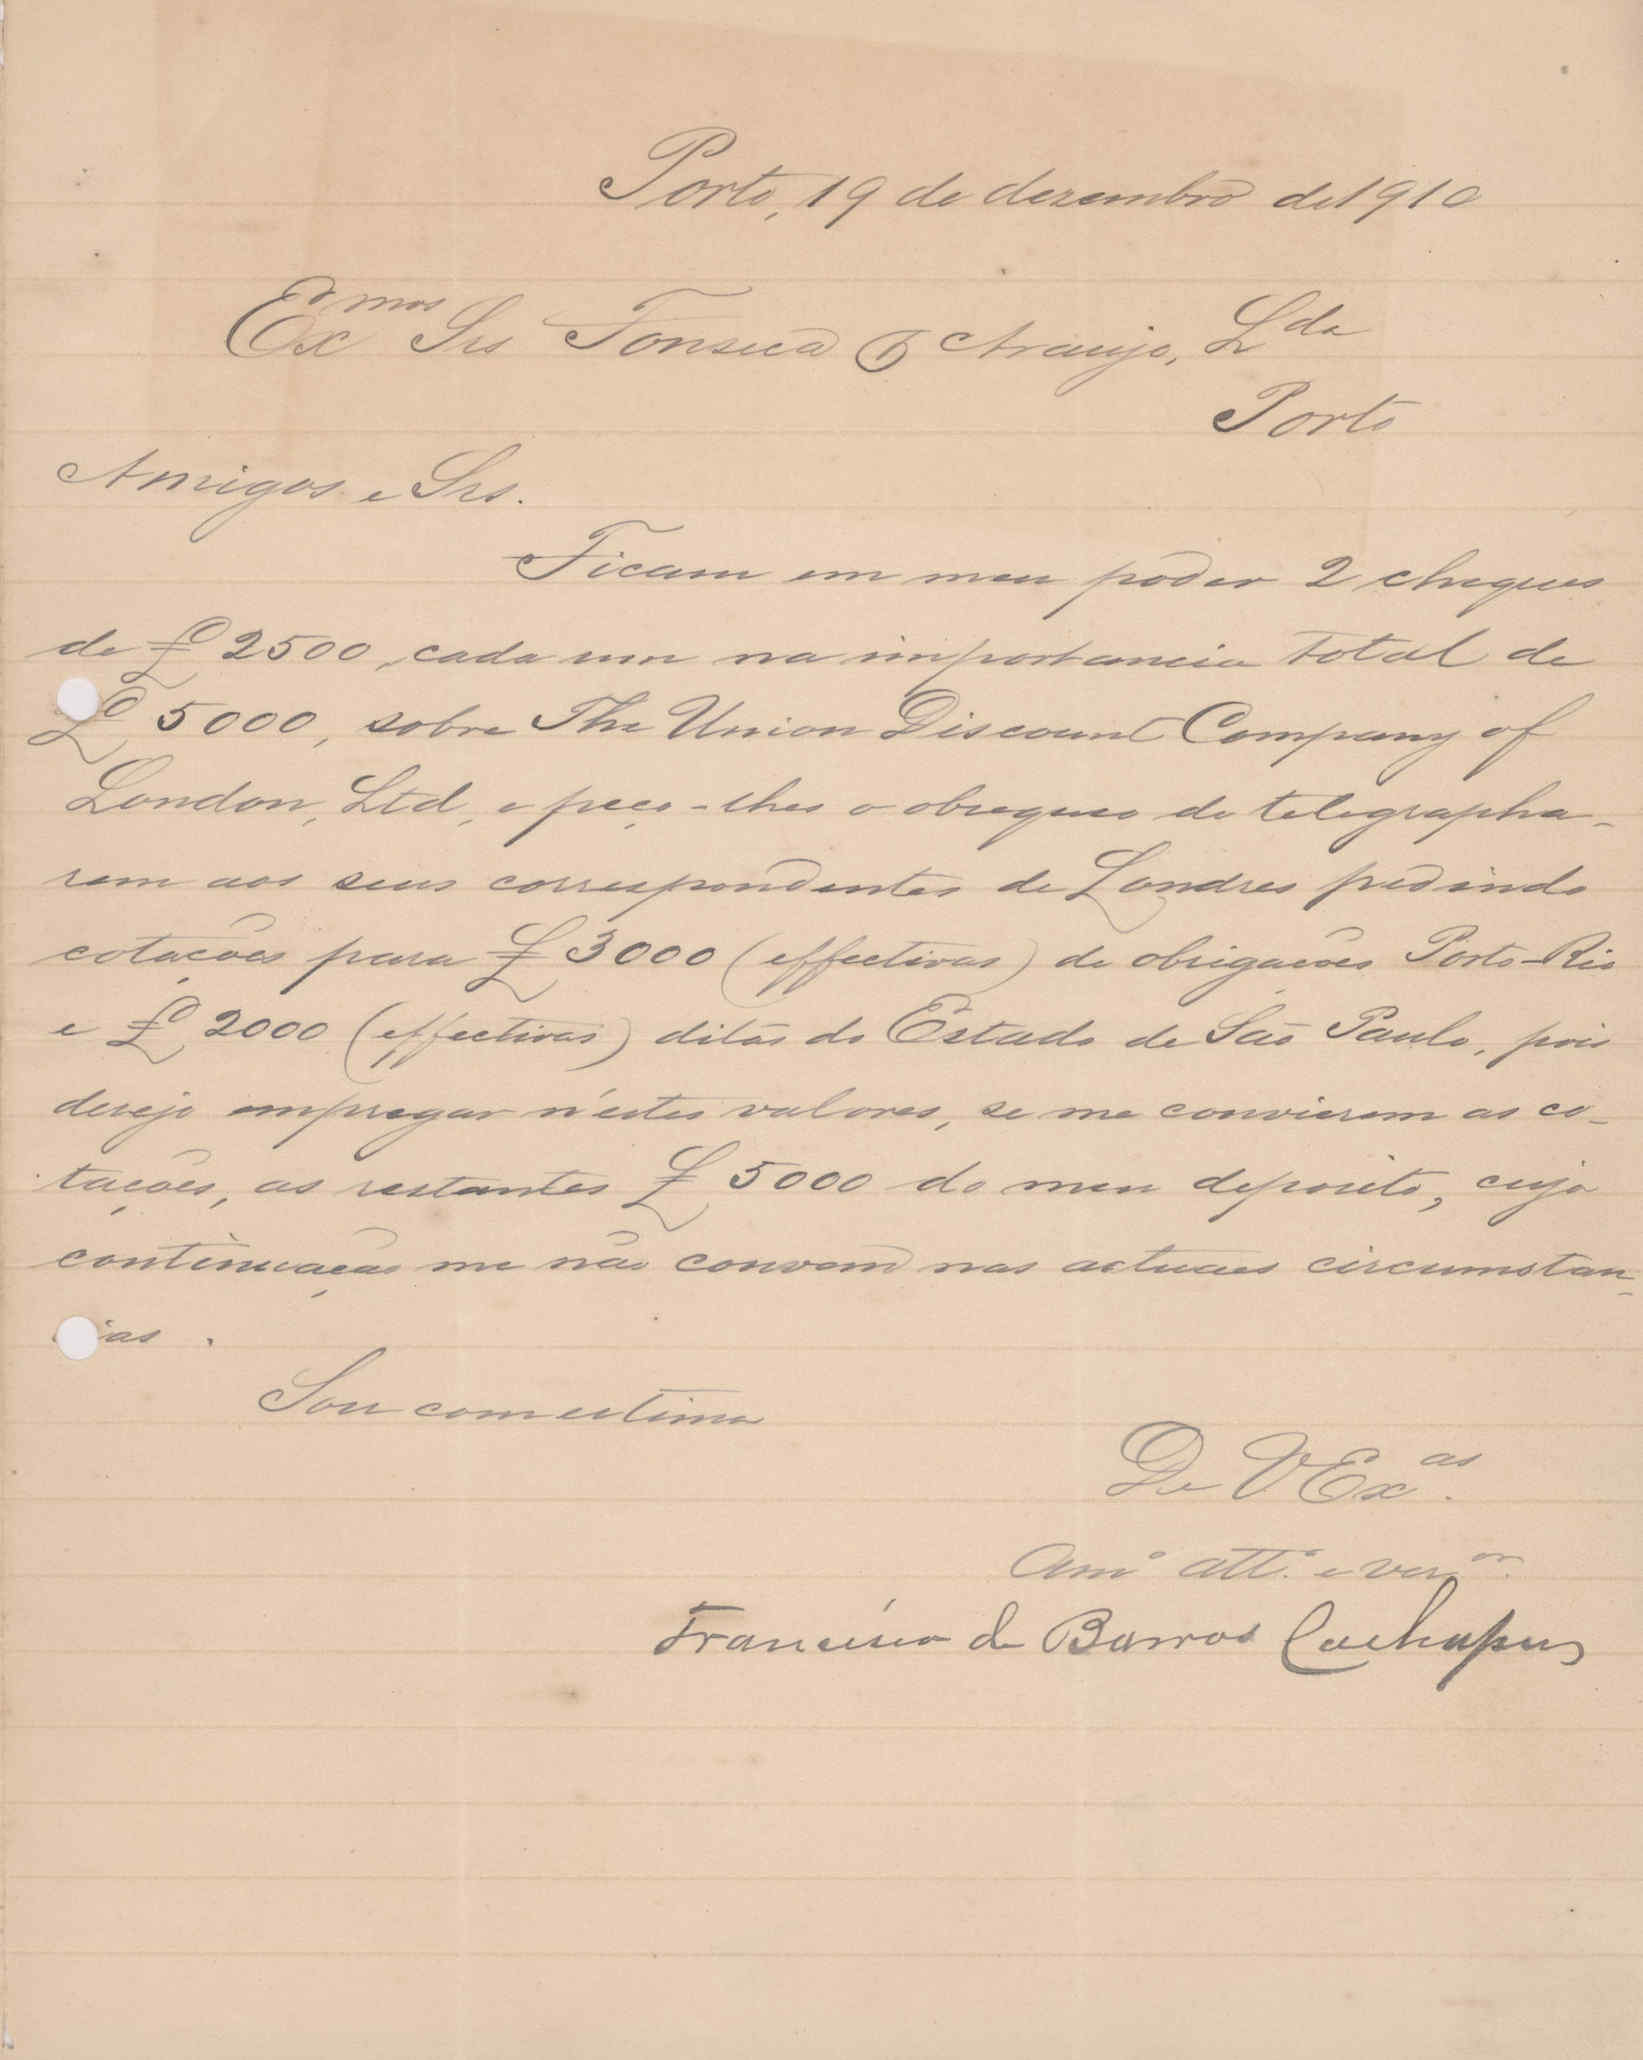 Porto, 19 de dezembro de 1910
Exmos Srs Fonseca & Araujo, Lda
Porto
Amigos e Srs.
Ficam em meu poder 2 cheques
de £ 2500, cada um na importancia total de
£ 5000, sobre The Union Discount Company of
London, Ltd, e peço-lhes o obsequio de telegrapha-
rem aos seus correspondentes de Londres pedindo
cotações para £ 3000 (effectivas) de obrigações Porto-Rio
e £ 2000 (effectivas) ditas do Estado de São Paulo, pois
desejo empregar n'estes valores, se me convierem as co-
tações, as restantes £ 5000 do meu deposito, cuja
continuação me não convem nas actuaes circumstan-
cias.
Sou com estima
De V Exas.
Amo atto. e venor.
Francisco de Barros